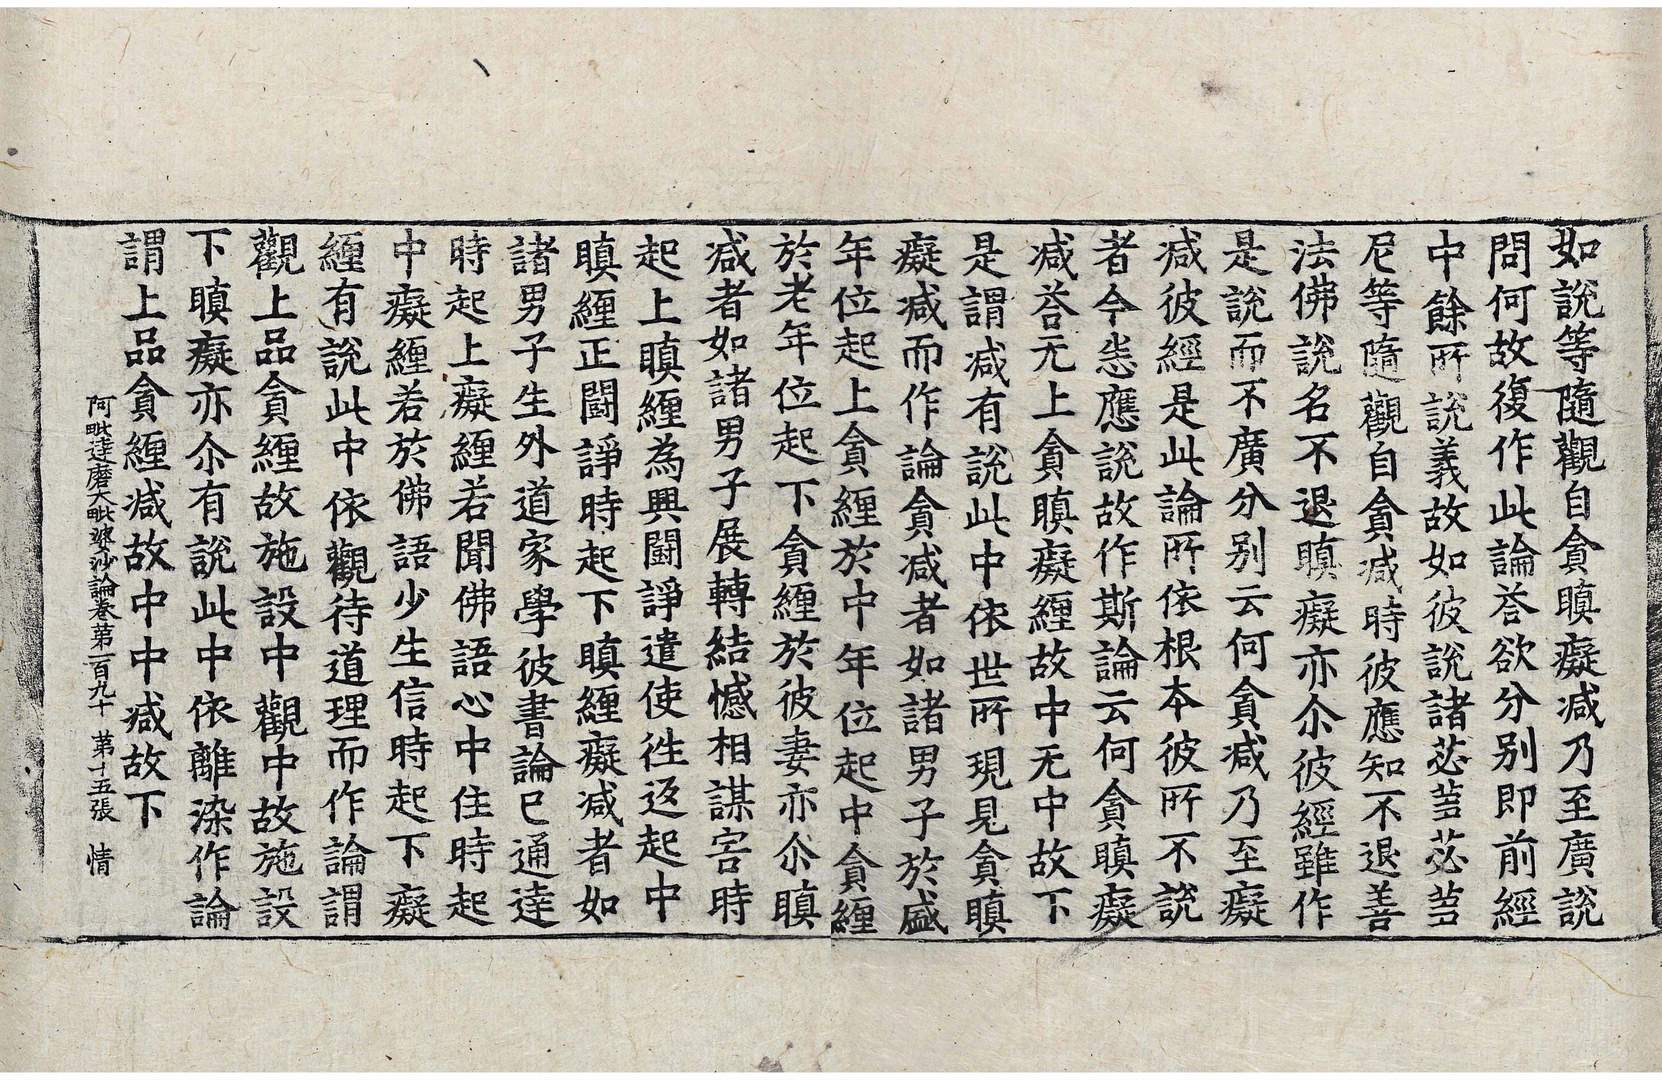 如說等隨觀自貪瞋癡减乃至廣說
問何故復作此論荅欲分別即前經
中餘所說義故如彼說諸苾蒭苾蒭
尼等隨觀自貪减時彼應知不退善
法佛說名不退瞋癡亦尒彼經雖作
是說而不廣分別云何貪减乃至癡
减彼經是此論所依根本彼所不說
者今悉應說故作斯論云何貪瞋癡
减荅无上貪瞋癡纒故中无中故下
是謂减有說此中依世所現見貪瞋
癡减而作論貪减者如諸男子於盛
年位起上貪纒於中年位起中貪纒
於老年位起下貪纒於彼妻亦尒瞋
减者如諸男子展轉結憾相謀害時
起上瞋纒為興鬪諍遣使往返起中
瞋纒正鬪諍時起下瞋纒癡减者如
諸男子生外道家學彼書論已通達
時起上癡纒若聞佛語心中住時起
中癡纒若於佛語少生信時起下癡
纒有說此中依觀待道理而作論謂
觀上品貪纒故施設中觀中故施設
下瞋癡亦尒有說此中依離染作論
謂上品貪纒减故中中减故下
阿毗達磨大毗婆沙論卷第一百九十 第十五張 情